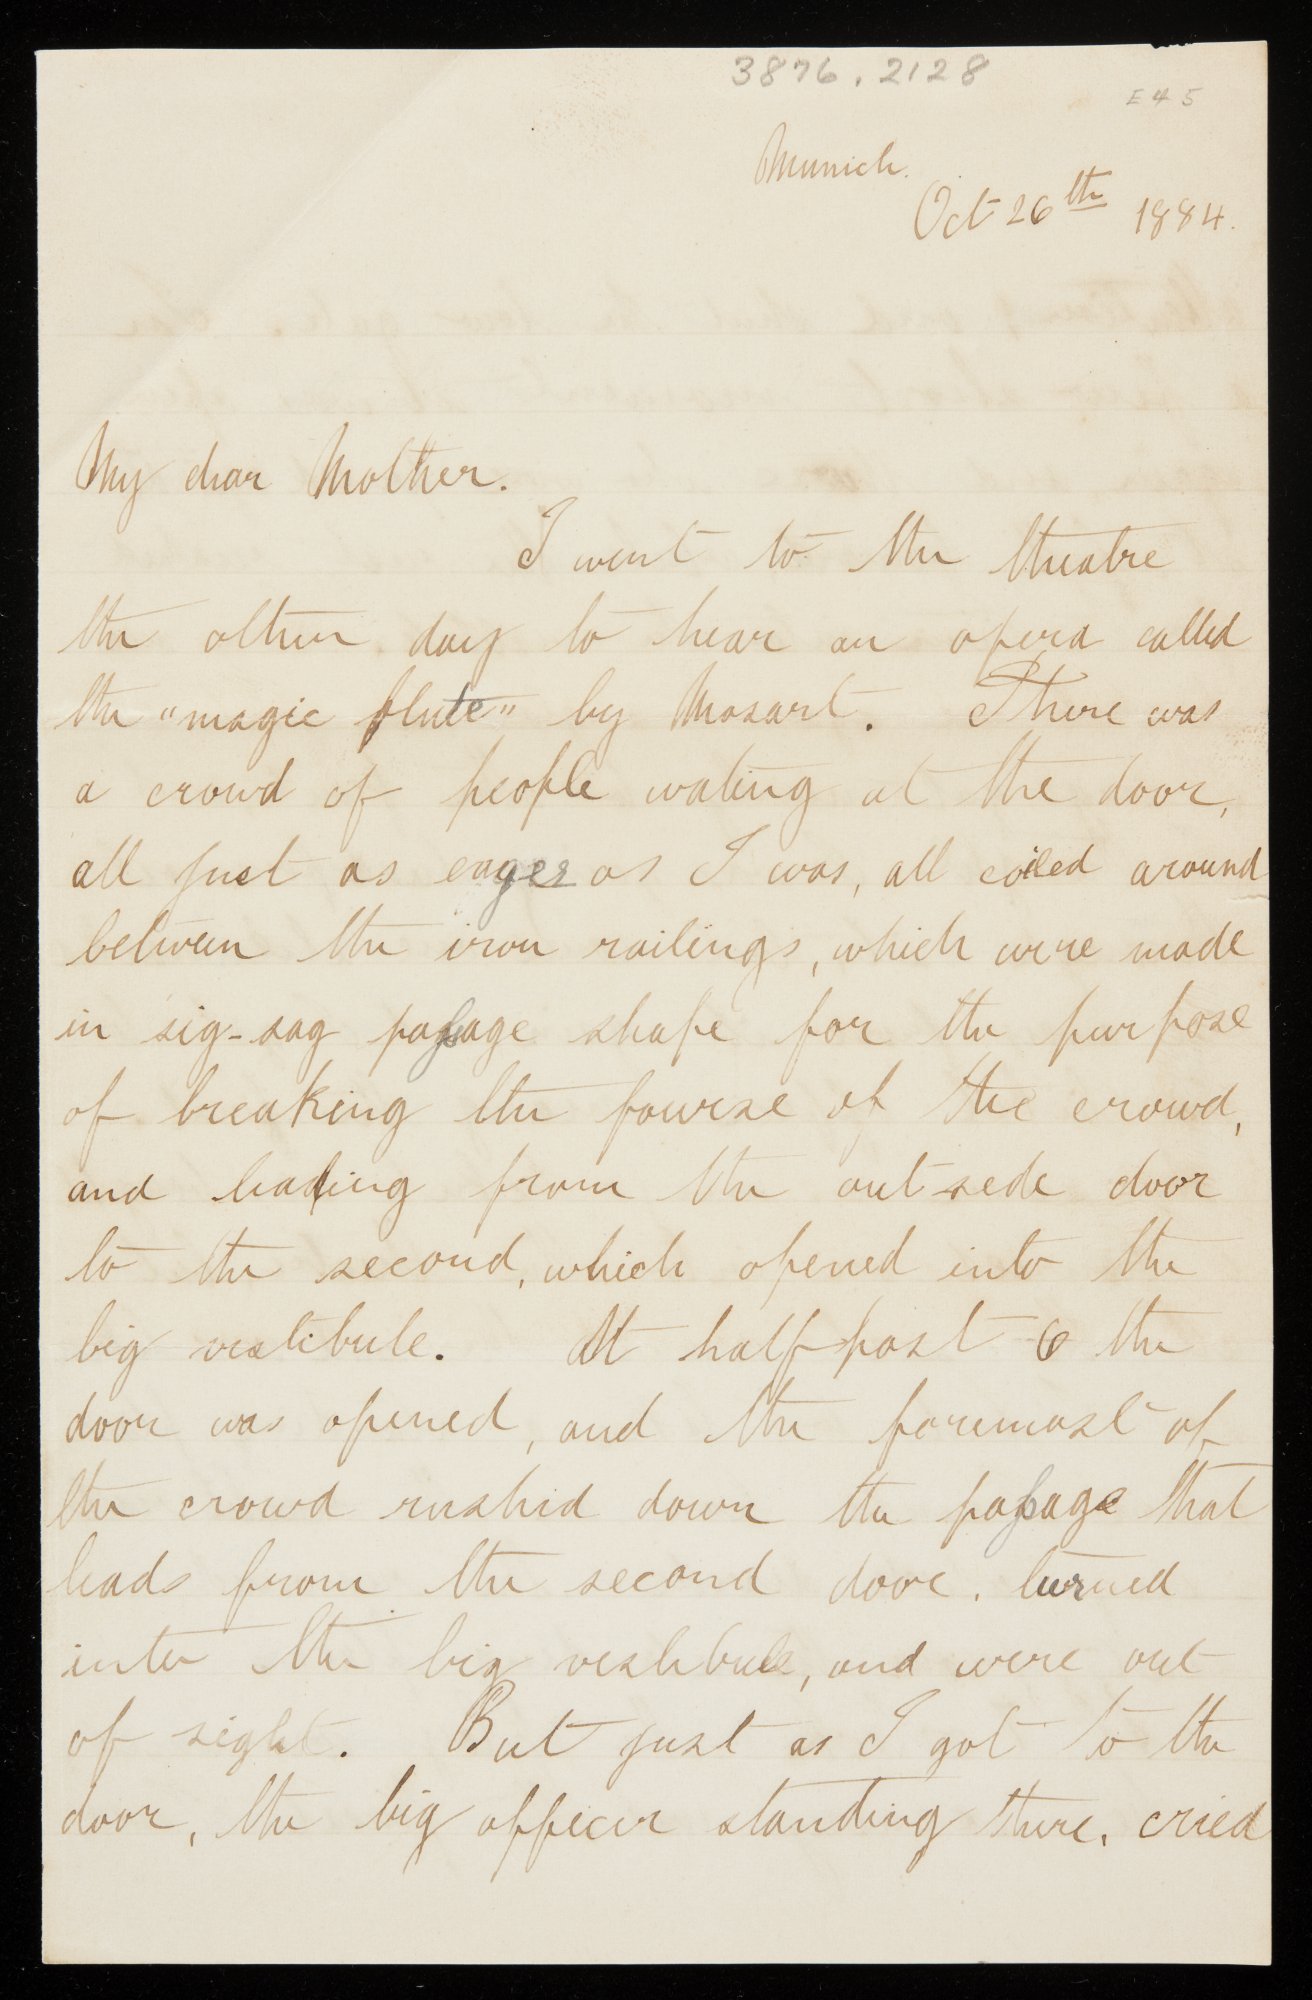 3876.2128
E45
Munich.
Oct 26th 1884.
My dear Mother.
I went to the theatre
the other day to hear an opera called
the "magic flute" by Mozart. There was
a crowd of people wating at the door,
all just as eager as I was, all coiled around
between the iron railings, which were made
in zig-zag passage shape for the purpose
of breaking the fourse of the crowd,
and leading from the outside door
to the second, which opened into the
big vestibule. At half past 6 the
door was opened, and the foremost of
the crowd rushed down the passage that
leads from the second door, turned
into the big vestibule, and were out
of sight. But just as I got to the
door, the big officer standing there, cried